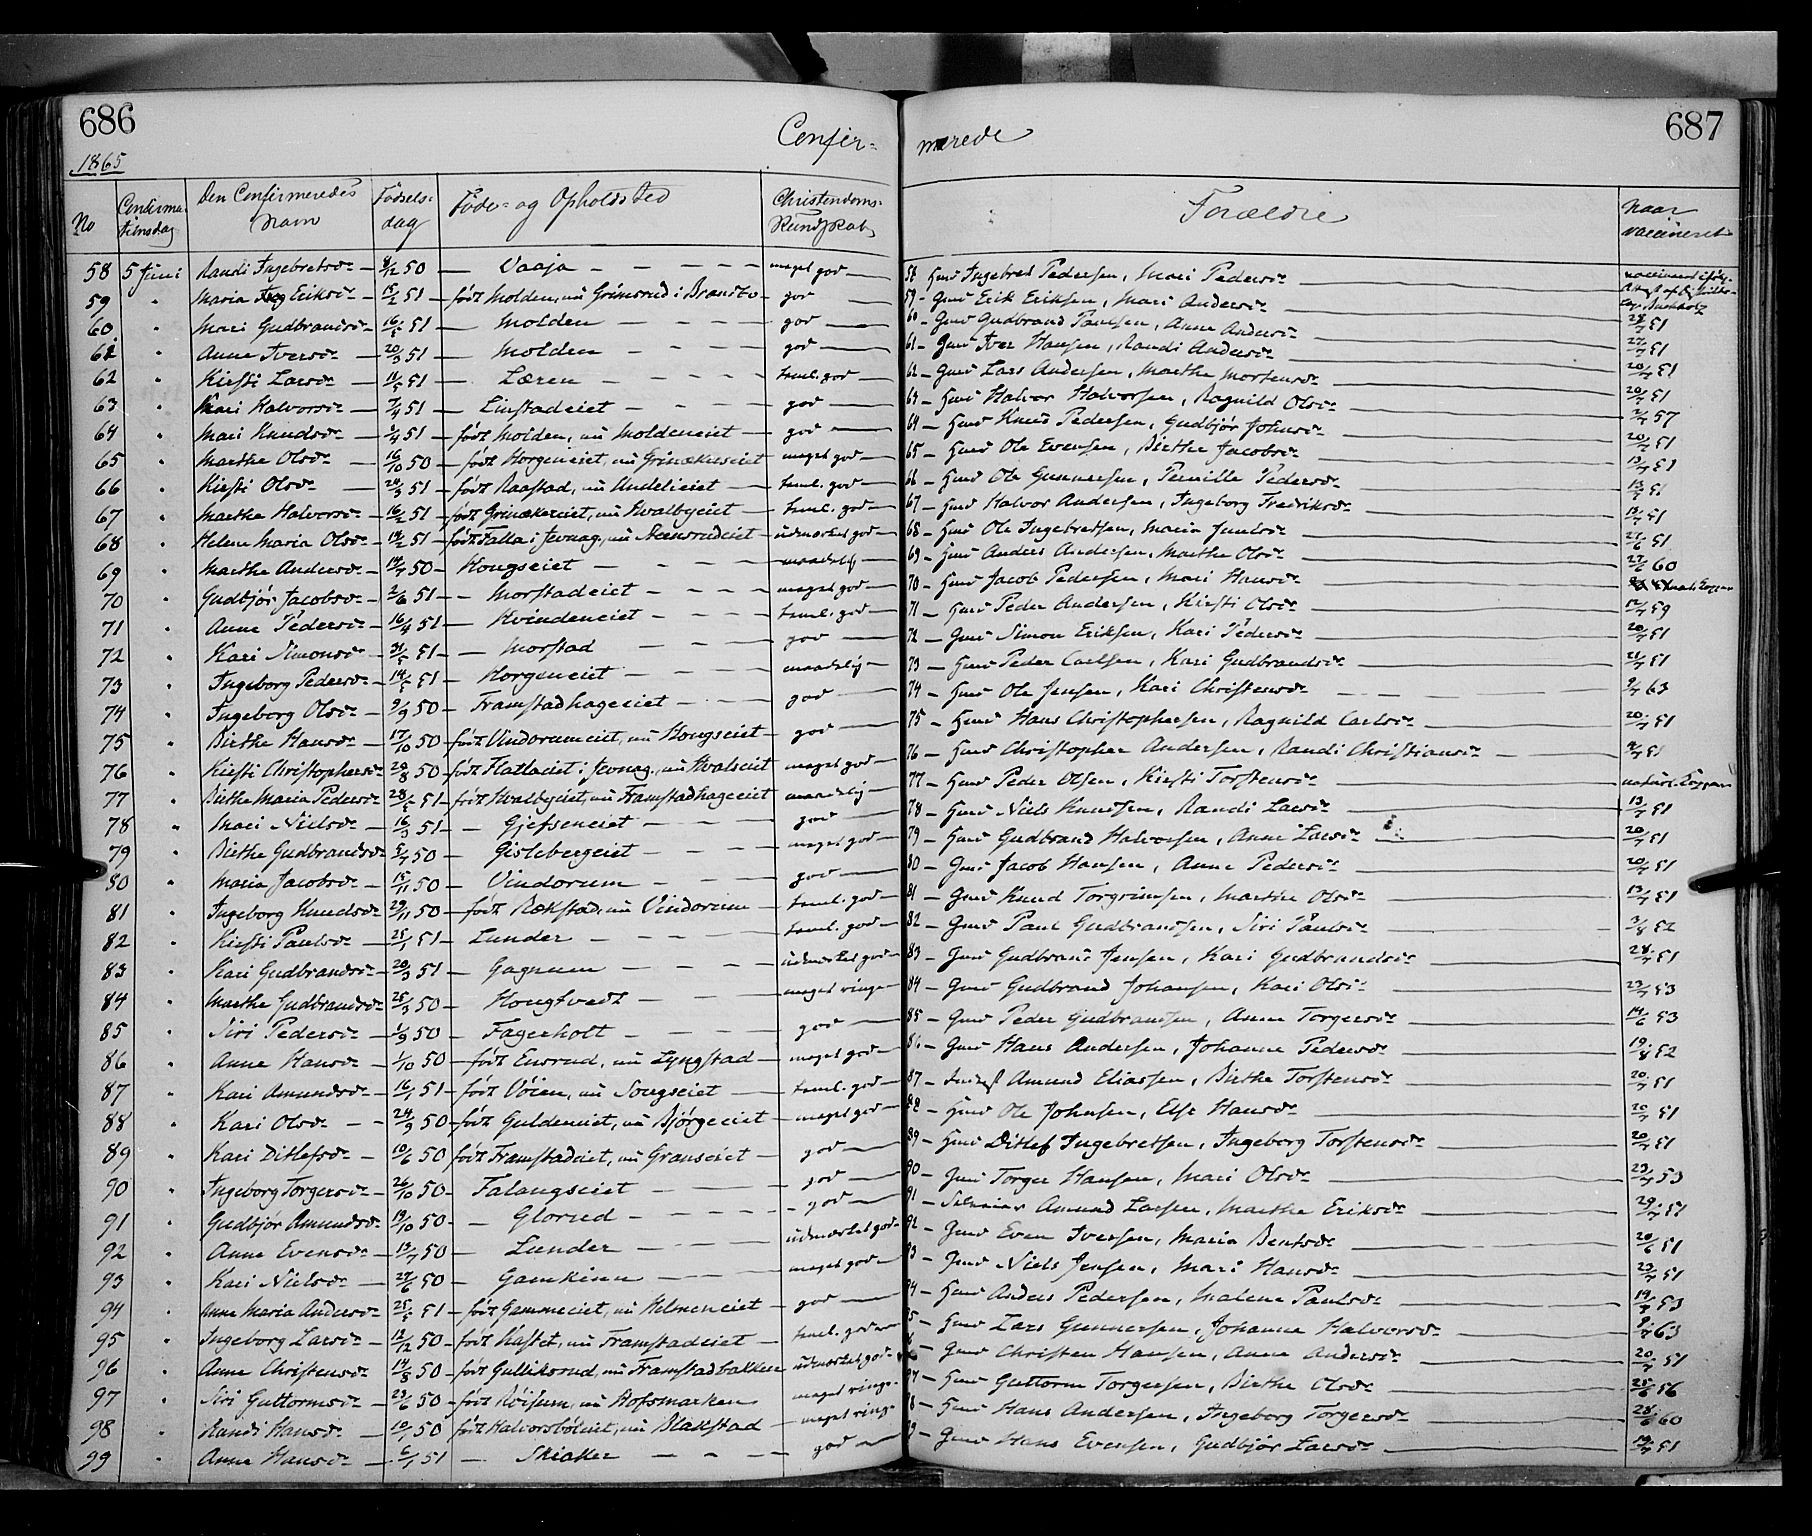 686
687
Confir- merede
1865
No
Confirma-
tionsdag
Den Confirmeredes
Navn
Fødsels-
dag
Føde- og Opholdssted
Christendoms-
Kundskab
Forældre
Naar
vaccineret
58 5 Juni Randi Ingebretsd. 8/12 50 — Vaaja — meget god — 58 Gmd Ingebret Pedersen, Mari Pedersd.
59 " Maria Eriksd. 15/2 51 — født Molden, nu Grimsrud i Brandbo — god — 59 — Gmd Erik Eriksen, Mari Andersd.
60 " Mari Gudbrandsd. 16/5 51 — Molden — god — 60 — Gmd Gudbrand Paulsen, Anne Andersd. 51
61 " Anne Iversd. 20/3 51 — Molden — god — 61 — Gmd Iver Hansen, Randi Andersd. 27/7 51
62 " Kirsti Larsd. 51 — Læren — teml. god — 62 — Gmd Lars Andersen, Marthe Mortensd. 20/7 51
63 " Kari Halvorsd. 7/4 51 — Linstadeiet — god — 63 — Hmd Halvor Halvorsen, Ragnild Olsd. 20/7 51
64 " Mari Knudsd. 51 — født Molden, nu Moldeneiet — god — 64 — Hmd Knud Pedersen, Gudbjør Johnsd. 57
65 " Marthe Olsd. 16/10 50 — født Horgeneiet, nu Grinækereiet meget god — 65 — Hmd Ole Evensen, Birthe Jacobsd. 20/7 51
66 " Kirsti Olsd. 51 — født Raastad, nu Undelieiet — teml. god — 66 — Hmd Ole Gunnersen, Pernille Pedersd. 13/7 51
67 " Marthe Halvorsd. 16/2 51 — født Grinækereiet, nu Hvalbyeiet — teml. god — 67 — Hmd Halvor Andersen, Ingeborg Fredriksd. 51
68 " Helene Maria Olsd. 51 — født Falla i Jevnag, nu Steensrudeiet — udmærket god — 68 — Hmd Ole Ingebretsen, Maria Juulsd. 51
69 " Marthe Andersd. 50 — Kongseiet — maadelig 69 — Hmd Anders Andersen, Marthe Olsd. 51
70 " Gudbjør Jacobsd. 2/6 51 — Morstadeiet — meget god — 70 — Hmd Jacob Pedersen, Mari Hansd. 60
71 " Anne Pedersd. 16/4 51 — Kvindeneiet — teml. god — 71 — Hmd Peder Andersen, Kirsti Olsd.
72 " Kari Simonsd. 31/5 51 — Morstad — god — 72 — Gmd Simon Eriksen, Kari Pedersd. 20/7 51
73 " Ingeborg Pedersd. 14/5 51 — Horgeneiet — maadelig — 73 — Hmd Peder Carlsen, Kari Gudbrandsd. 51
74 " Ingeborg Olsd. 9/9 50 — Framstadhageeiet — god — 74 — Hmd Ole Jensen, Kari Christensd. 63
75 " Birthe Hansd. 17/10 50 — født Vindorumeiet, nu Kongseiet — god — 75 — Hmd Hans Christophersen, Ragnild Carlsd. 20/7 51
76 " Kirsti Christophersd. 50 — født Flatlaeiet i Jevnag, nu Hvalseiet meget god — 76 — Hmd Christopher Andersen, Randi Christiansd. — 51
77 " Birthe Maria Pedersd. 51 — født Hvalbyeiet, nu Framstadhageeiet maadelig — 77 — Hmd Peder Olsen, Kirsti Torstensd. naturl. Kopper
78 " Mari Nielsd. 16/3 51 — Gjefseneiet — god — 78 — Hmd Niels Knudsen, Randi Larsd. 13/7 51
79 " Birthe Gudbrandsd. 50 — Gislebergeiet — meget god — 79 — Hmd Gudbrand Halvorsen, Anne Larsd. 20/7 51
80 " Maria Jacobsd. 15/11 50 — Vindorum — god — 80 — Gmd Jacob Hansen, Anne Pedersd. 20/7 51
81 " Ingeborg Knudsd. 29/11 50 — født Rækstad, nu Vindorum — teml. god — 81 — Gmd Knud Torgrimsen, Marthe Olsd. 13/7 51
82 " Kirsti Paulsd. 25/1 51 — Lunder — teml. god — 82 — Gmd Paul Gudbrandsen, Siri Paulsd. 3/8 52
83 " Kari Gudbrandsd. 20/3 51 — Gagnum — udmærket god — 83 — Gmd Gudbrand Jensen, Kari Gudbrandsd. 51
84 " Marthe Gudbrandsd. 50 — Hougtvedt — meget ringe 84 — Gmd Gudbrand Johansen, Kari Olsd. 53
85 " Siri Pedersd. 1/9 50 — Fagerholt — god — 85 — Gmd Peder Gudbrandsen, Anne Torgersd. 53
86 " Anne Hansd. 1/10 50 — født Ensrud, nu Lyngstad — meget god — 86 — Gmd Hans Andersen, Johanne Pedersd. 19/8 52
87 " Kari Amundsd. 16/1 51 — født Vøien, nu Songseiet — teml. god — 87 — Inderst Amund Eliassen, Birthe Torstensd. 20/7 51
88 " Kari Olsd. 24/9 50 — født Guldeneiet, nu Bjørgeeiet — meget god — 88 — Hmd Ole Johnsen, Else Hansd. 20/7 51
89 " Kari Ditlefsd. 10/6 50 født Framstadeiet, nu Granseiet — god — 89 — Hmd Ditlef Ingebretsen, Ingeborg Torstensd. 20/7 51
90 " Ingeborg Torgersd. 26/10 50 — Falangseiet — god — 90 — Gmd Torger Hansen, Mari Olsd. 53
91 " Gudbjør Amundsd. 50 — Glorud — god — 91 — Amund Larsen, Marthe Eriksd. 51
92 " Anne Evensd. 13/7 50 — Lunder — udmærket god — 92 — Gmd Even Iversen, Maria Bentsd. 51
93 " Kari Nielsd. 50 — Gamkinn — meget god — 93 — Gmd Niels Jensen, Mari Hansd. 51
94 " Anne Maria Andersd. 51 — født Gammeeiet, nu Helmeneiet — god — 94 — Hmd Anders Pedersen, Malene Paulsd. 53
95 " Ingeborg Larsd. 50 — født Kastet, nu Framstadeiet teml. god — 95 — Hmd Lars Gunnersen, Johanne Halvorsd. 63
96 " Anne Christensd. 50 — født Gulliksrud, nu Framstadbakken udmærket god — 96 — Gmd Christen Hansen, Anne Andersd. 20/7 51
97 " Siri Guttormsd. 50 — født Røisum, nu Hofsmarken meget ringe 97 — Hmd Guttorm Torgersen, Birthe Olsd. 56
98 " Randi Hansd. 50 født Halvorsbøleiet, nu Blakstad meget ringe 98 — Hmd Hans Andersen, Ingeborg Torgersd. 60
99 " Anne Hansd. 6/1 51 — Skiaker — god — 99 — Gmd Hans Evensen, Gudbjør Larsd. 51